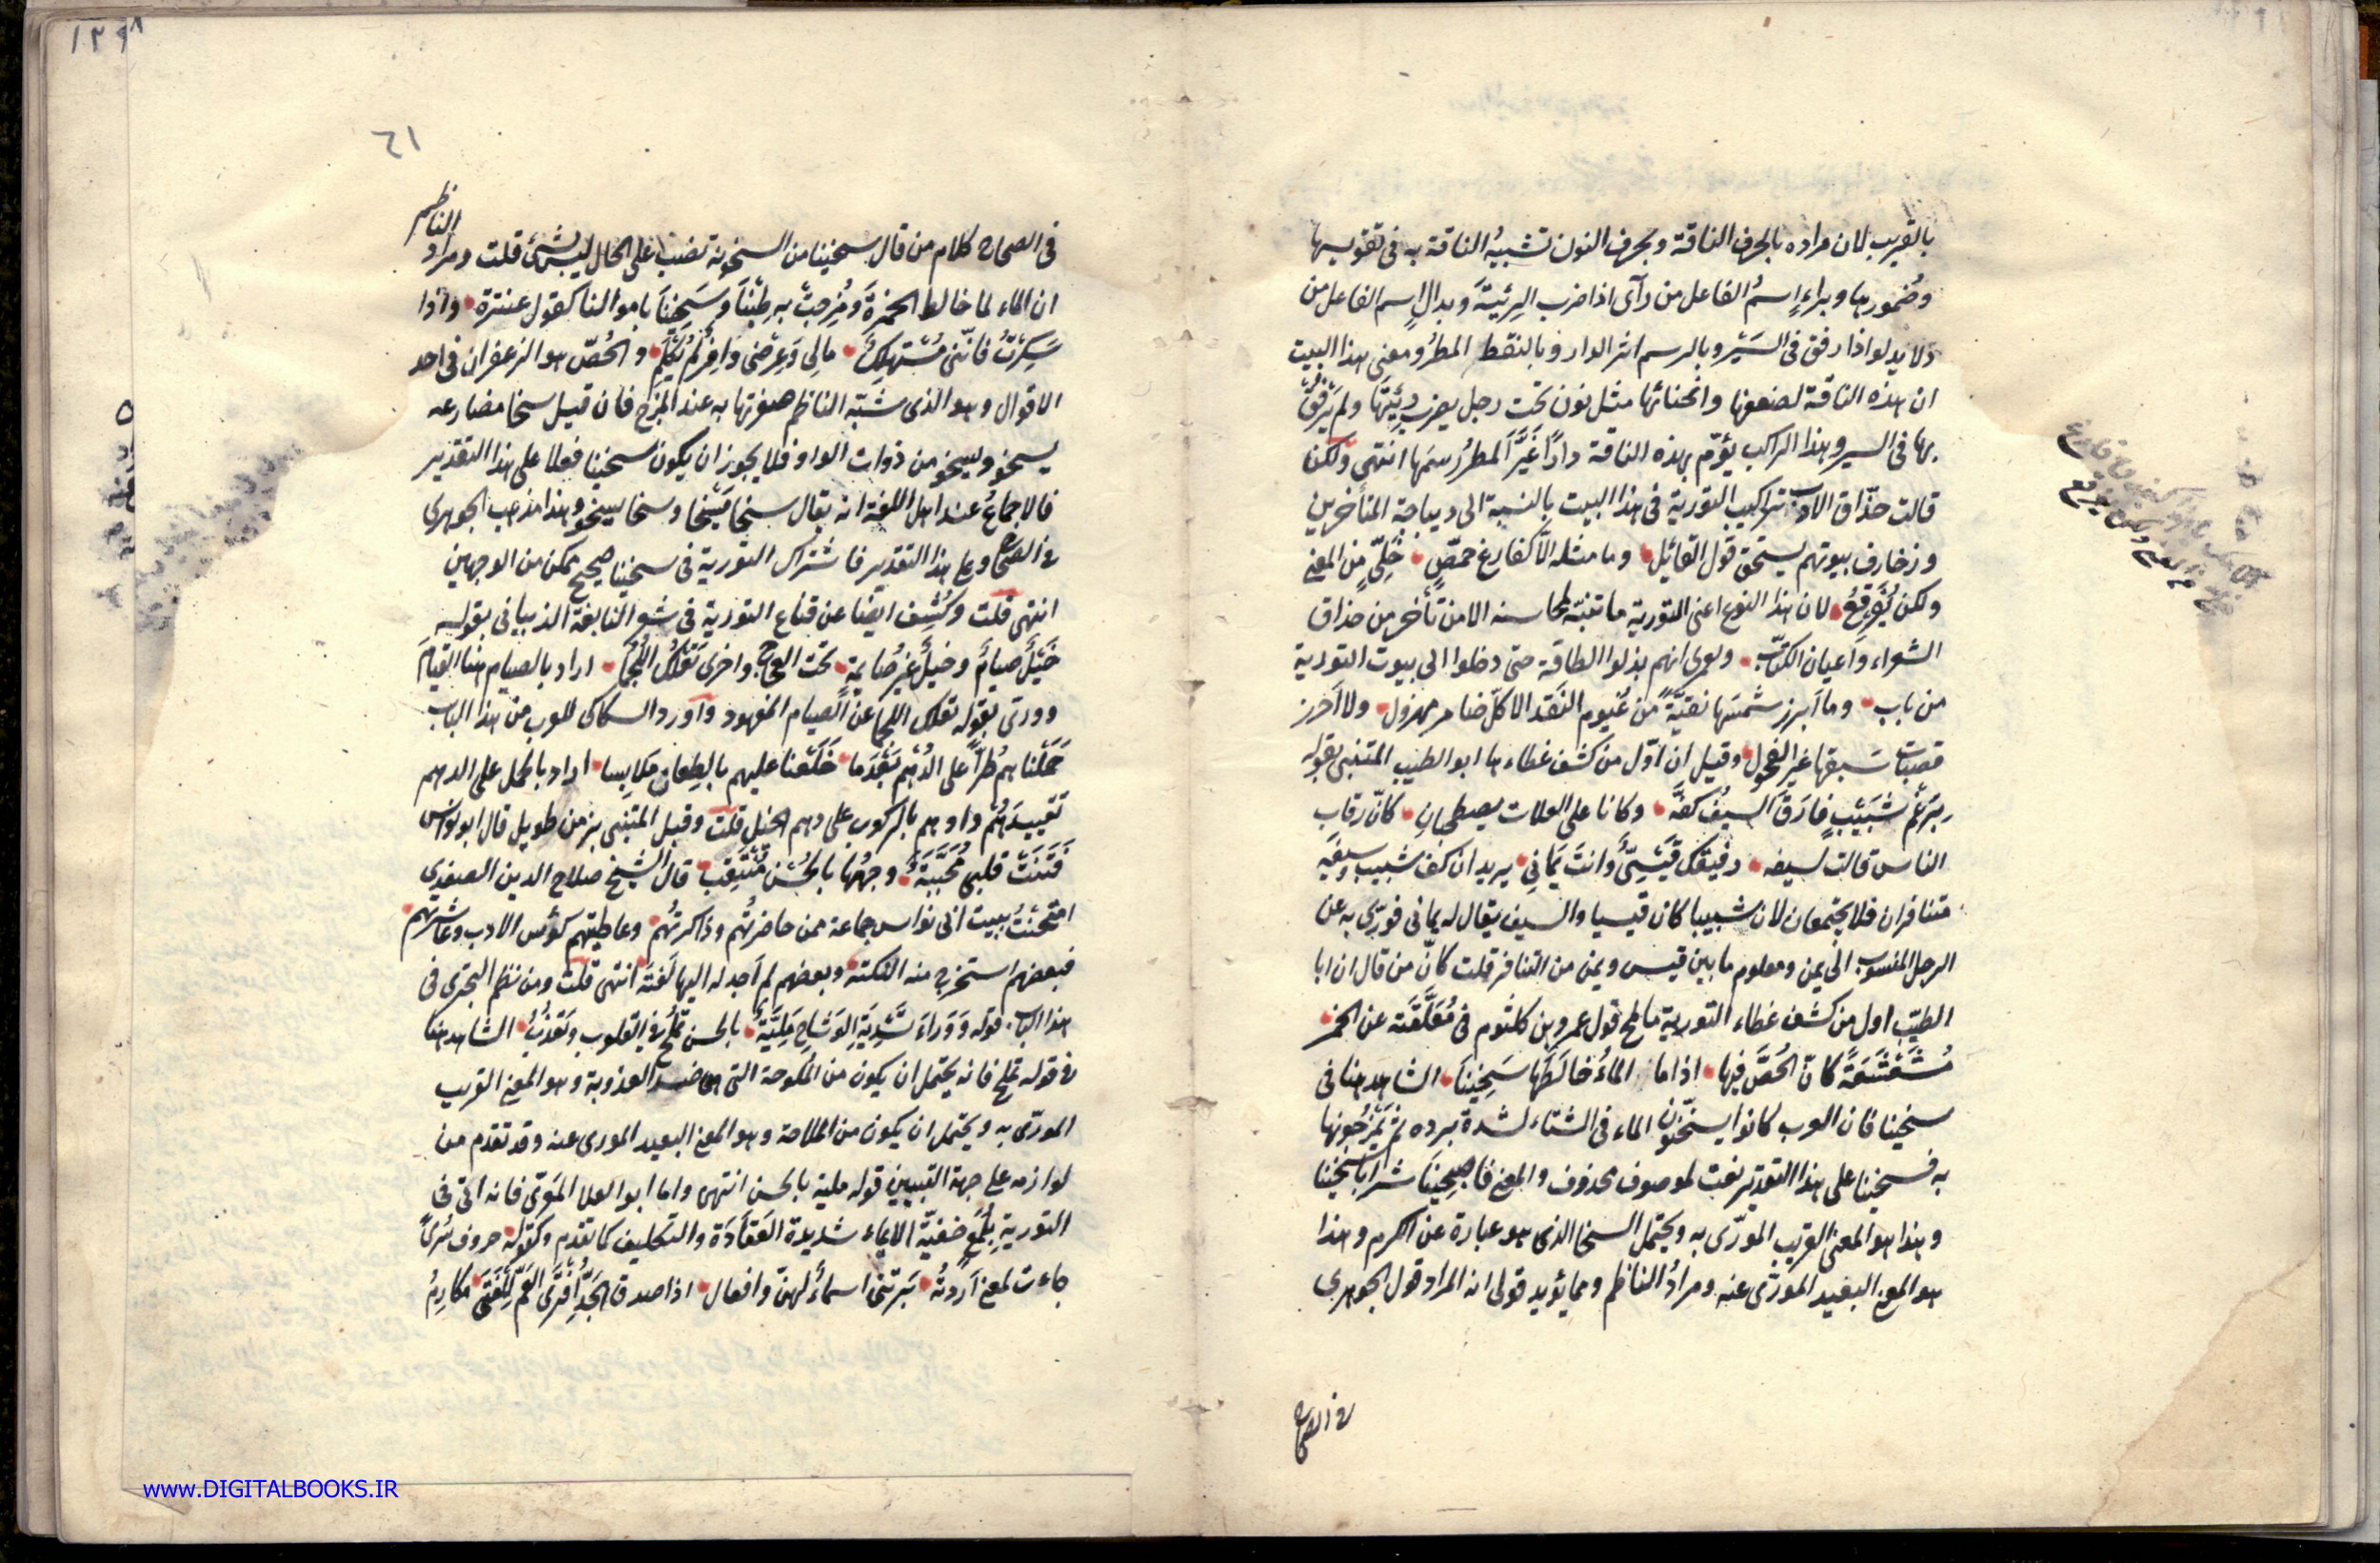 بالقريب لان مراده بالحرف الناقة وبحرف النون تشبيهُ الناقة به في تقويسها
وضُمورها وبراءٍ اسمُ الفاعل من رآى اذا ضرب الرِئيَّةَ وبدالٍ اسم الفاعل من
دلا يدلو اذا رفق في السَيْر وبالرسم اثر الدار وبالنقط المطرُ ومعنى هذا البيت
ان هذه الناقة لضعفها وانحنائها مثل نون تحت رجل يضرب رِئَيْتَها ولم يَرْفُقْ
بها في السير وهذا الراكب يؤمّ بهذه الناقة داراً غَيَّرَ المطرُ رسمَها انتهى ولكن
قالت حذّاق الادب تراكيب التورية في هذا البيت بالنسبة الى ديباجة المتأخرين
وزخارف بيوتهم يستحق قول القائل وما مثله الّا كفارغ حمصٍ خَلِيٍّ من المعنى
ولكن يُفَرقِعُ لان هذا النوع اعنى التورية ما تنبّه لمحاسنه الا من تأخر من حذاق
الشعراء وأعيان الكتّاب ولعمرى انهم بذلوا الطاقة حتى دخلوا الى بيوت التورية
من باب وما أبرز شمسَها نقيّةً من غيوم النَقد الا كلّ ضامر مهزول ولا أحرز
قصبات سَبقها غير الفحول وقيل ان اوّل من كشف غطاءها ابو الطيب المتنبى بقوله
برَغْمِ شبَيْبٍ فارَقَ السيفُ كفَّهُ وكانا على العلات يصطحبان كانّ رقاب
الناس قالت لسيفه رفيقك قَيْسِيٌّ وانتَ يَمَانِي يريد ان كف شبيب وسيفَه
متنافران فلا يجتمعان لان شبيبا كان قيسيا والسيف يقال له يمانى فورّى به عن
الرجل المنسوب الى يمن ومعلوم ما بين قيس ويمن من التنافر قلت كانّ من قال ان ابا
الطيّب اول من كشف غطاء التورية ما لمح قول عمرو بن كلثوم في مُعَلَّقَته عن الخمر
مُشَعْشَعَةً كانّ الحُصَّ فيها اذا ما الماءُ خالَطَها سَخِينَا الشاهد هنا في
سخينا فان العرب كانوا يسخّنون الماء في الشتاء لشدة برده ثم يَمْزجُونها
به فسخينا على هذا التقدير نعت لموصوف محذوف والمعنى فاصبحِينا شرابًا سخينا
وهذا هو المعنى القريب المورّى به ويحتمل السخا الذى هو عبارة عن الكرم وهذا
هو المعنى البعيد المورّى عنه ومرادُ الناظم ومما يؤيد قولى انه المراد قول الجوهرى
في الصحاح
٦١
في الصحاح كلام من قال سخينا من السخونة نصب على الحال ليس بشئ قلت ومراد الناظم
ان الماء لما خالط الخمرةَ ومُزجتْ به طِبْنَا وسَخِينَا باموالنا كقول عنترة واذا
سَكِرْتُ فانّنى مُسْتهلِكٌ مالى وَعِرْضى وَافِرٌ لم يُكْلَمِ والحُصّ هو الزعفران في احد
الاقوال وهو الذى شبّه الناظم صفرتها به عند المزج فان قيل سخا مضارعه
يسخو ويسخو من ذوات الواو فلا يجوز ان يكون سخينا فعلا على هذا التقدير
فالاجماع عند اهل اللغة انه يقال سخا يسخا وسخا يسخو وهذا مذهب الجوهرى
في الصحاح وعلى هذا التقدير فاشتراك التورية في سخينا صحيح ممكن من الوجهين
انتهى قلت وكُشِف ايضا عن قناع التورية في شعر النابغة الذبيانى بقوله
خَيْلٌ صيامٌ وخيلٌ غيرُ صَايمةٍ تحت العجاج واخرى تَعْلُكُ اللُجُمَا اراد بالصيام هنا القيامَ
وورّى بقوله تعلك اللجما عن الصيام المعهود واورد السكاكى للعرب من هذا الباب
حَمَلْناهم طُرّاً على الدُهْمِ بَعْدَما خَلَعْنا عليهم بالطِعان مَلابِسا اراد بالحمل على الدهم
تَقْييدَهُم واوهم بالركوب على دهم الخيل قلت وقبل المتنبى بزمن طويل قال ابو نواس
فَتَنَتْ قلبى مُحَجَّبَةٌ وجهُها بالحُسْنِ مُنْتَقِب قال الشيخ صلاح الدين الصفدى
امتَحَنْتُ ببيت ابى نواس جماعة ممن حاضرتُهم وذاكرتُهُم وعاطيتهم كؤس الادب وعاشرتهم
فبعضهم استخرج منه النكتة وبعضهم لم أجد له اليها لَفتَة انتهى قلت ومن نظم البحترى في
هذا الباب قوله وَوَراءَ تَسْدِيَةِ الوَشَاحِ مَلِيَّةٌ بالحسن تَمْلُحُ في القلوب وتَعْذُبُ الشاهد هنا
في قوله تملح فانه يحتمل ان يكون من الملوحة التى هى ضد العذوبة وهو المعنى القريب
المورّى به ويحتمل ان يكون من الملاحة وهو المعنى البعيد المورى عنه وقد تقدم من
لوازمه على جهة التبيين قوله ملية بالحسن انتهى واما ابو العلا المعرّى فانه اتى في
التورية بلُمَعٍ خفيّة الايماء شديدة العَقَادَة والتكليف كما تقدم وكقوله حروف سُرًى
جاءت لمعنى أردتُه بَرَتْنى اسماءٌ لهنّ وافعال اذا صدق الجَدُّ افتَرَى العَمُّ لِلفَتَى مَكارِمُ
www.DIGITALBOOKS.IR